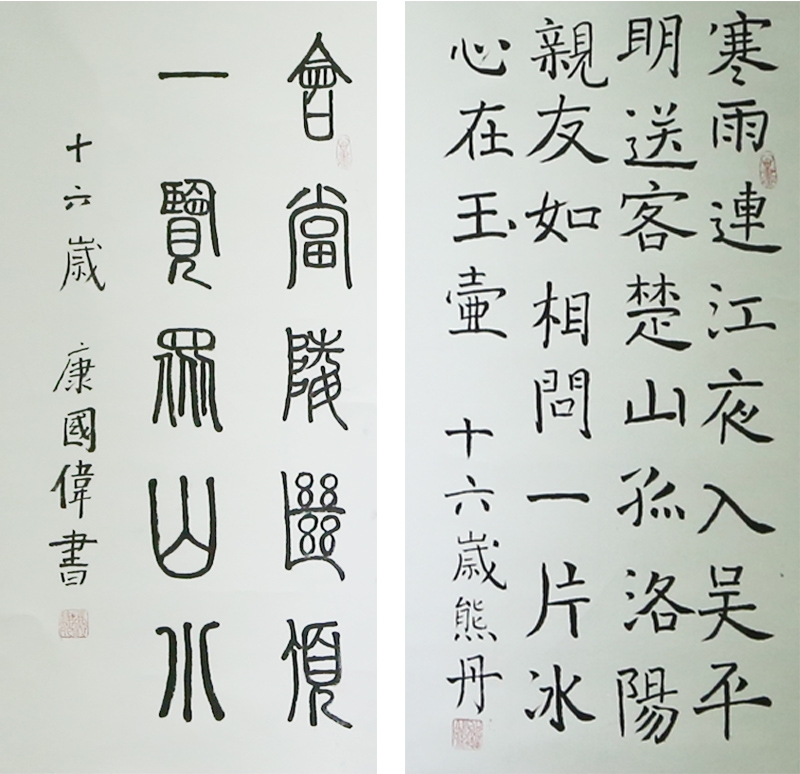 會當陵絕頂
一覽眾山小
十六歲 康國偉書
寒雨連江夜入吴平
明送客楚山孤洛陽
親友如相問一片冰
心在玉壺 十六歲熊丹